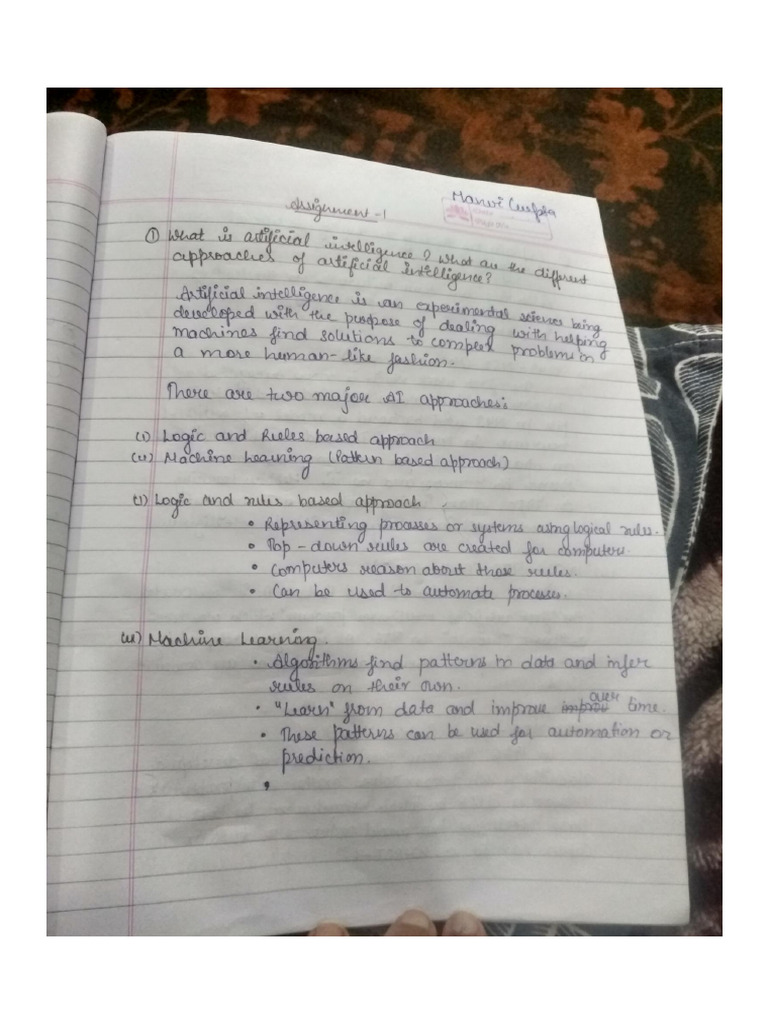 Assignment-1
Manvi Gupta
① What is artificial intelligence? What are the different
approaches of artificial intelligence?
Artificial intelligence is an experimental science being
developed with the purpose of dealing with helping
machines find solutions to complex problems in
a more human-like fashion.
There are two major AI approaches:
(i) Logic and Rules based approach
(ii) Machine Learning (Pattern based approach)
(i) Logic and rules based approach
• Representing processes or systems using logical rules.
• Top-down rules are created for computers.
• Computers reason about those rules.
• Can be used to automate processes.
(ii) Machine Learning.
• Algorithms find patterns in data and infer
rules on their own.
• "Learn" from data and improve over time.
• These patterns can be used for automation or
prediction.